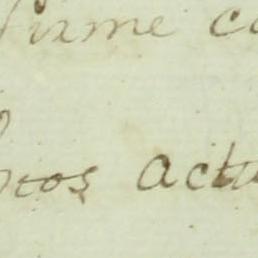 firme co
ptos actu